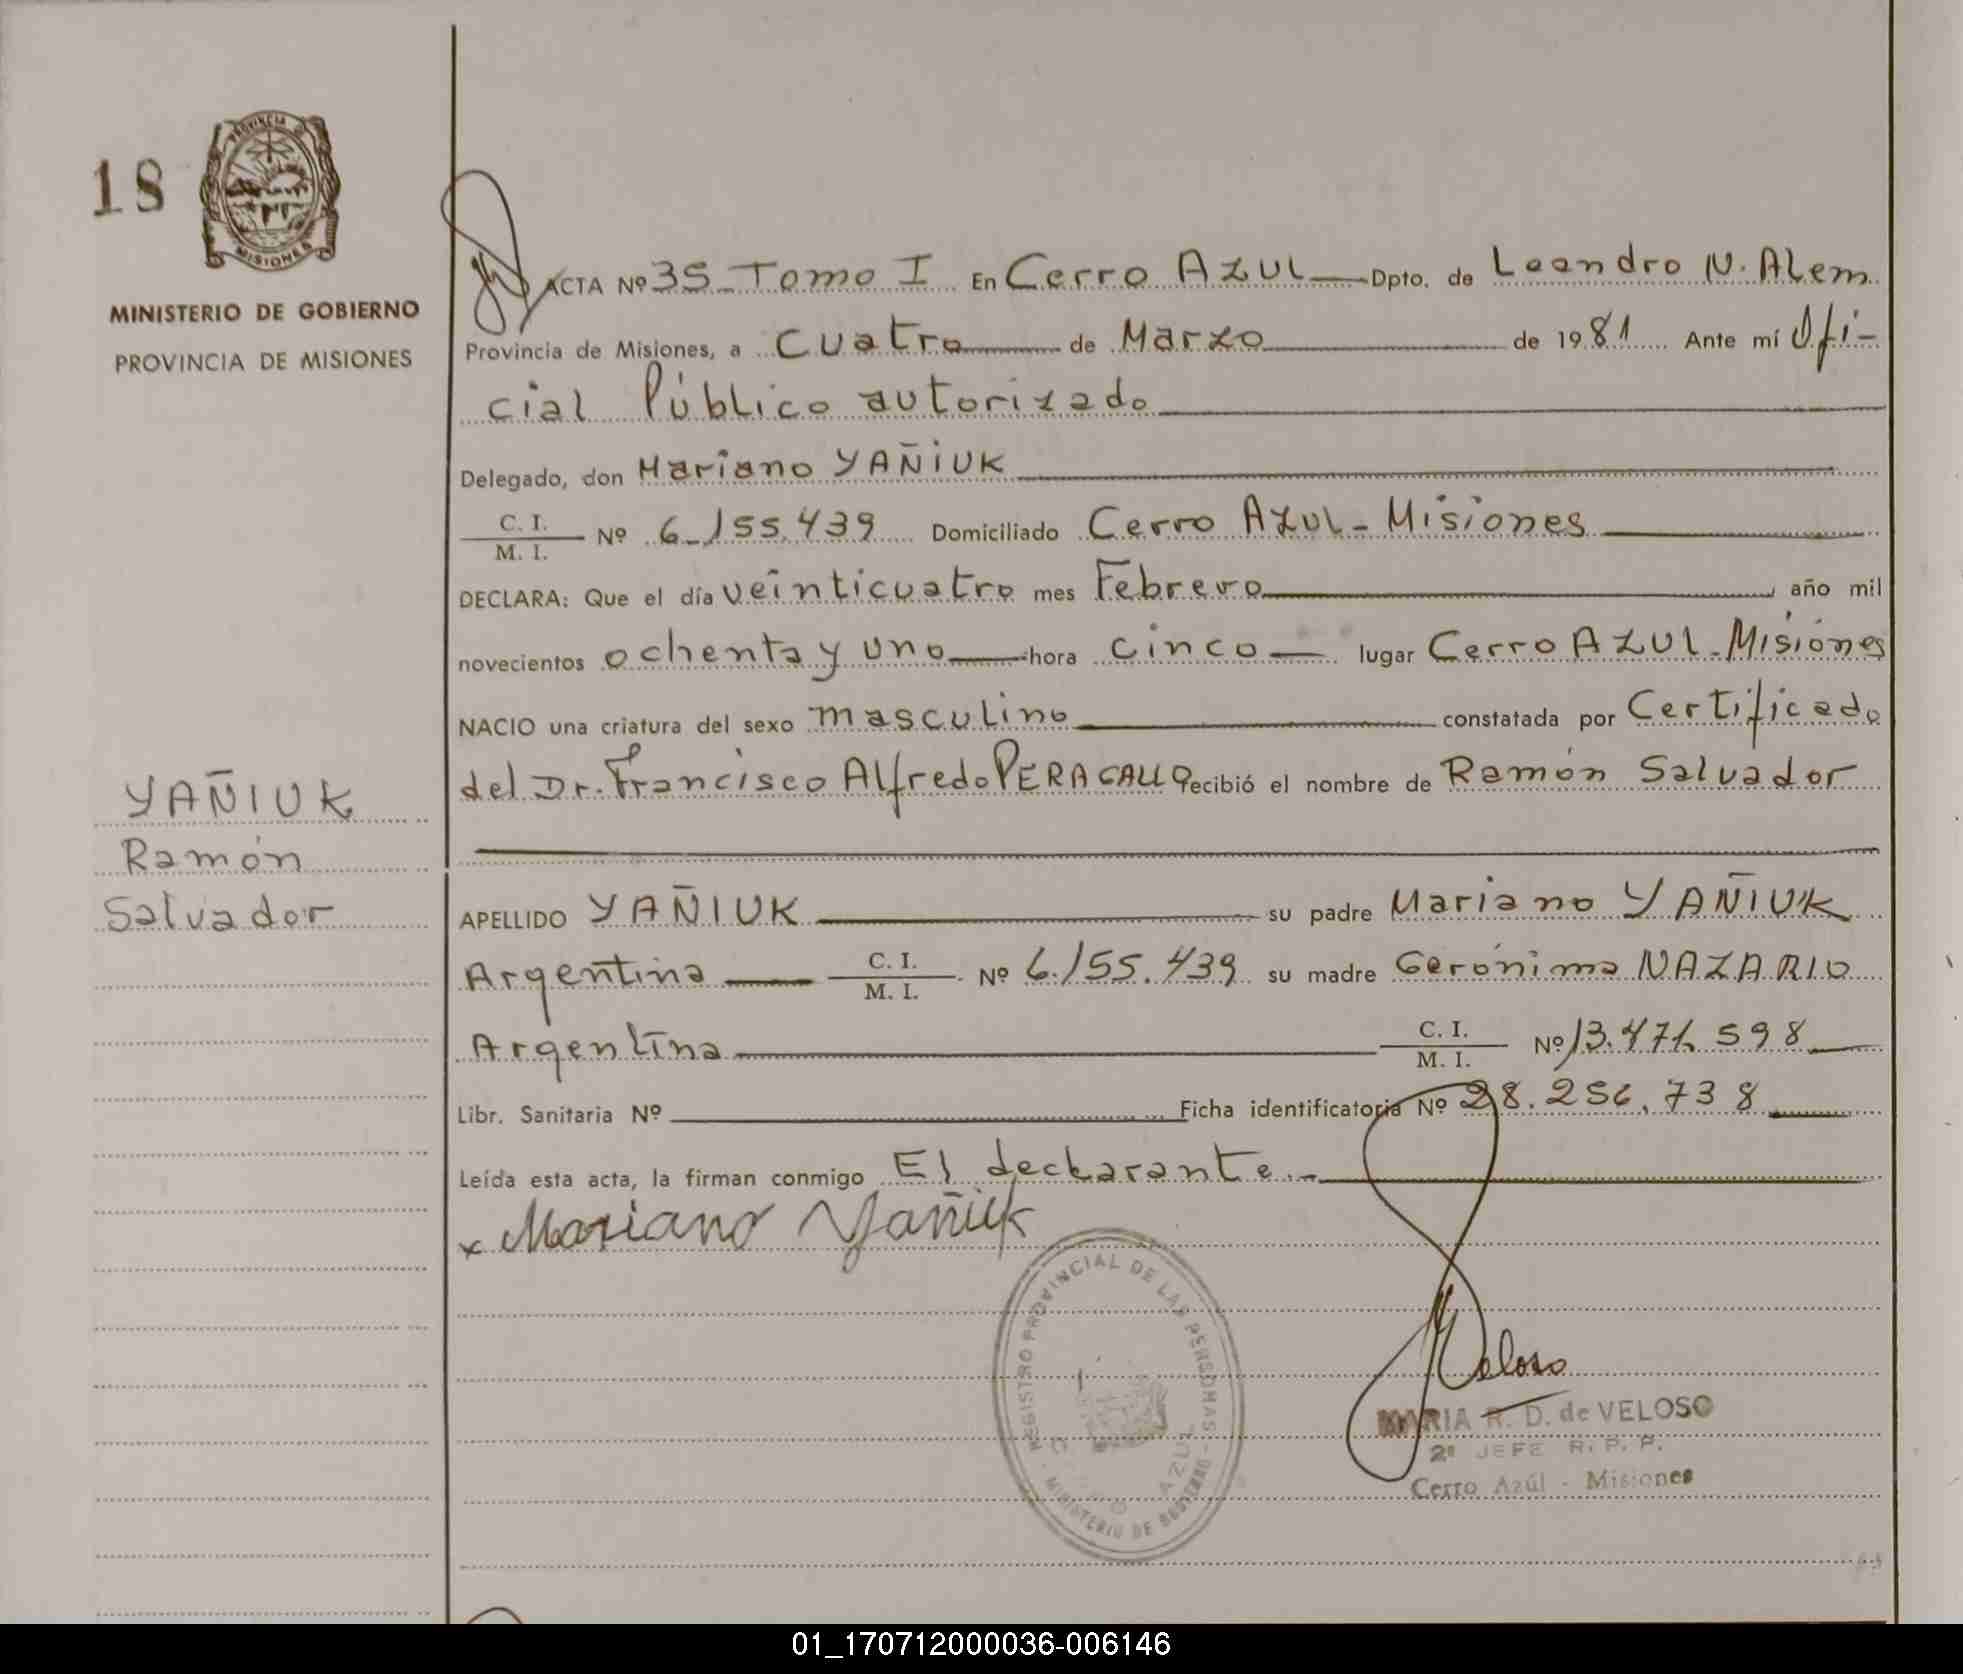 18
PROVINCIA D
MISIONES
MINISTERIO DE GOBIERNO
PROVINCIA DE MISIONES
YAÑIUK
Ramón
Salvador
ACTA Nº 35 - Tomo I En Cerro AZUL Dpto. de Leandro N. Alem
Provincia de Misiones, a Cuatro de Marzo de 1981 Ante mí Ofi-
cial Público autorizado
Delegado, don Mariano YAÑIUK
C. I.
M. I. Nº 6.155.439 Domiciliado Cerro AZUL - Misiones
DECLARA: Que el día veinticuatro mes Febrero, año mil
novecientos ochenta y uno hora cinco lugar Cerro AZUL - Misiones
NACIO una criatura del sexo masculino constatada por Certificado
del Dr. Francisco Alfredo PERAGALLO recibió el nombre de Ramón Salvador
APELLIDO YAÑIUK su padre Mariano YAÑIUK
Argentina C. I.
M. I. Nº 6.155.439 su madre Gerónima NAZARIO
Argentina C. I.
M. I. Nº 13.471.598
Libr. Sanitaria Nº Ficha identificatoria Nº 28.256.738
Leída esta acta, la firman conmigo El declarante.-
x Mariano Yañiuk
REGISTRO PROVINCIAL DE LAS PERSONAS - MINISTERIO DE GOBIERNO
AZUL
Veloso
MARIA R. D. de VELOSO
2º JEFE R. P. P.
Cerro Azúl - Misiones
01_170712000036-006146